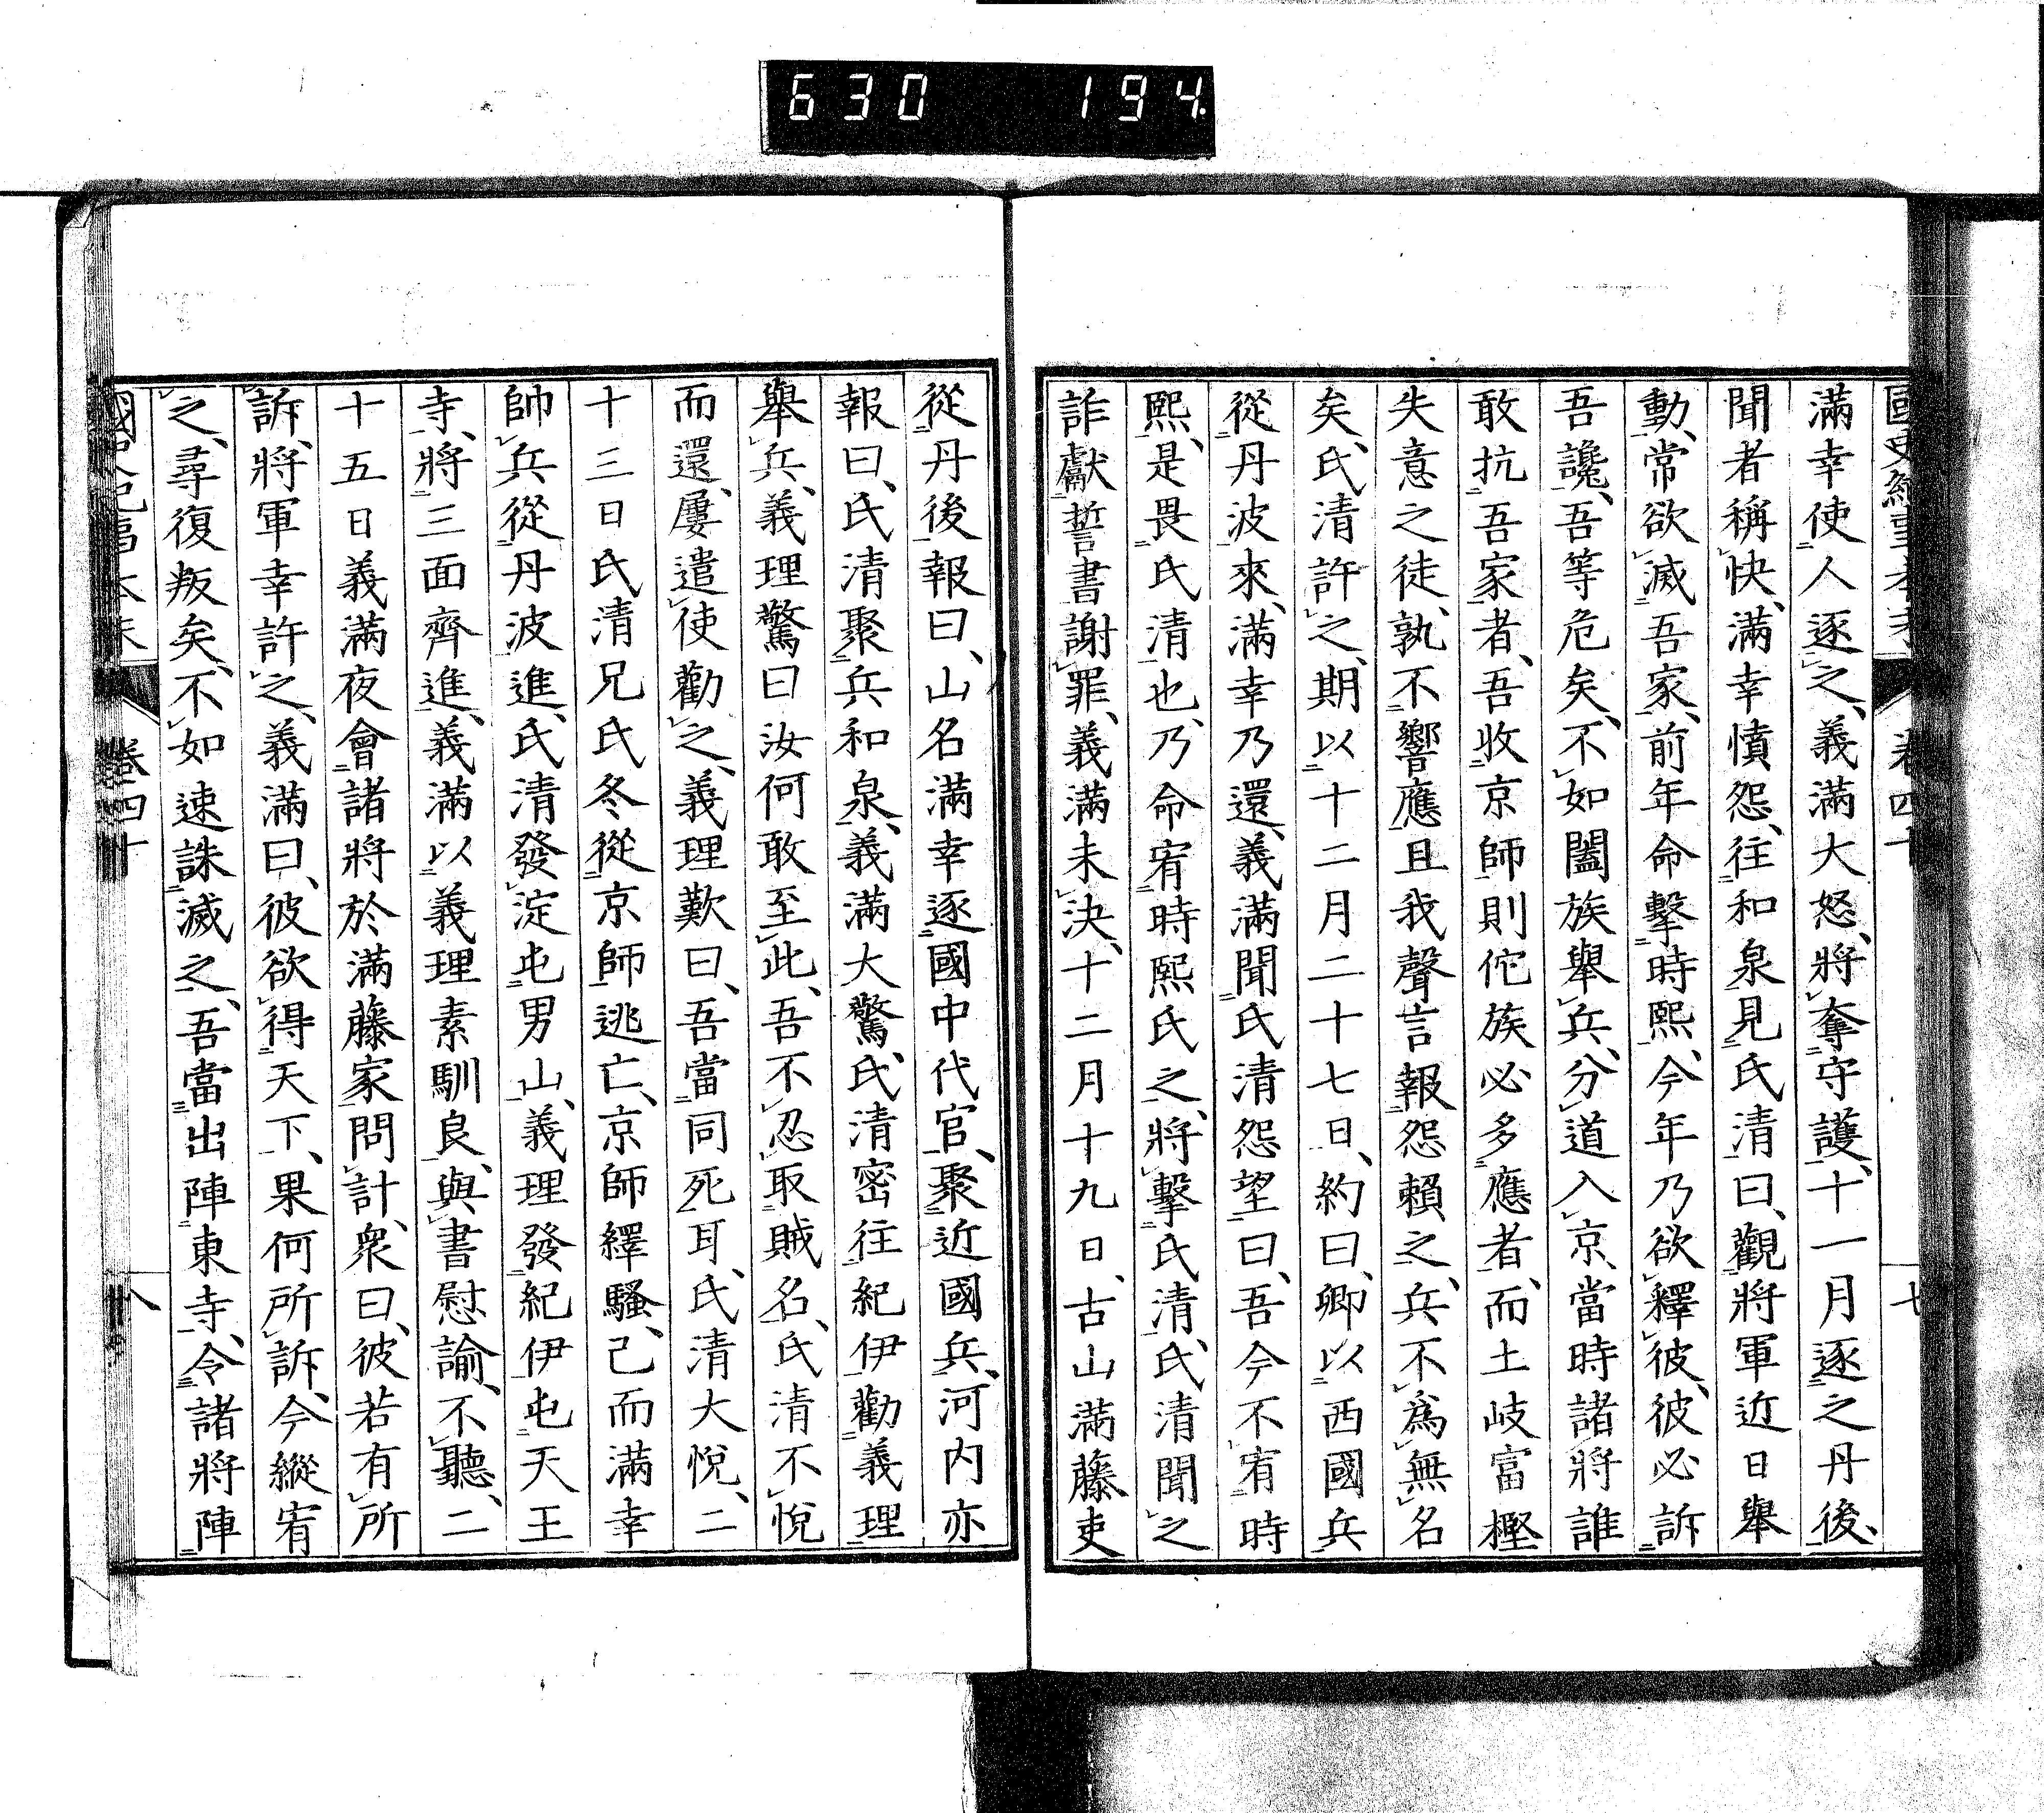 630 194.
滿幸使人逐之、義滿大怒、將奪守護、十一月逐之丹後、
聞者稱快、滿幸憤怨、往和泉見氏清曰、觀將軍近日舉
動、常欲滅吾家、前年命擊時熙、今年乃欲釋彼、彼必訴
吾讒、吾等危矣、不如闔族舉兵、分道入京、當時諸將誰
敢抗吾家者、吾收京師則佗族必多應者、而土岐富樫
失意之徒、孰不響應且我聲言報怨賴之、兵不爲無名
矣、氏清許之、期以十二月二十七日、約曰、卿以西國兵
從丹波來、滿幸乃還、義滿聞氏清怨望曰、吾今不宥時
熙、是畏氏清也、乃命宥時熙氏之、將擊氏清、氏清聞之
詐獻誓書謝罪、義滿未決、十二月十九日、古山滿藤吏
從丹後報曰、山名滿幸逐國中代官、聚近國兵、河内亦
報曰、氏清聚兵和泉、義滿大驚、氏清密往紀伊勸義理
舉兵、義理驚曰汝何敢至此、吾不忍取賊名、氏清不悅
而還、屢遣使勸之、義理歎曰、吾當同死耳、氏清大悅、二
十三日氏清兄氏冬從京師逃亡、京師繹騷、己而滿幸
帥兵從丹波進、氏清發淀屯男山、義理發紀伊屯天王
寺、將三面齊進、義滿以義理素馴良、與書慰諭、不聽、二
十五日義滿夜會諸將於滿藤家問計、衆曰、彼若有所
訴、將軍幸許之、義滿曰、彼欲得天下、果何所訴、今縱宥
之、尋復叛矣、不如速誅滅之、吾當出陣東寺、令諸將陣
卷四十 八